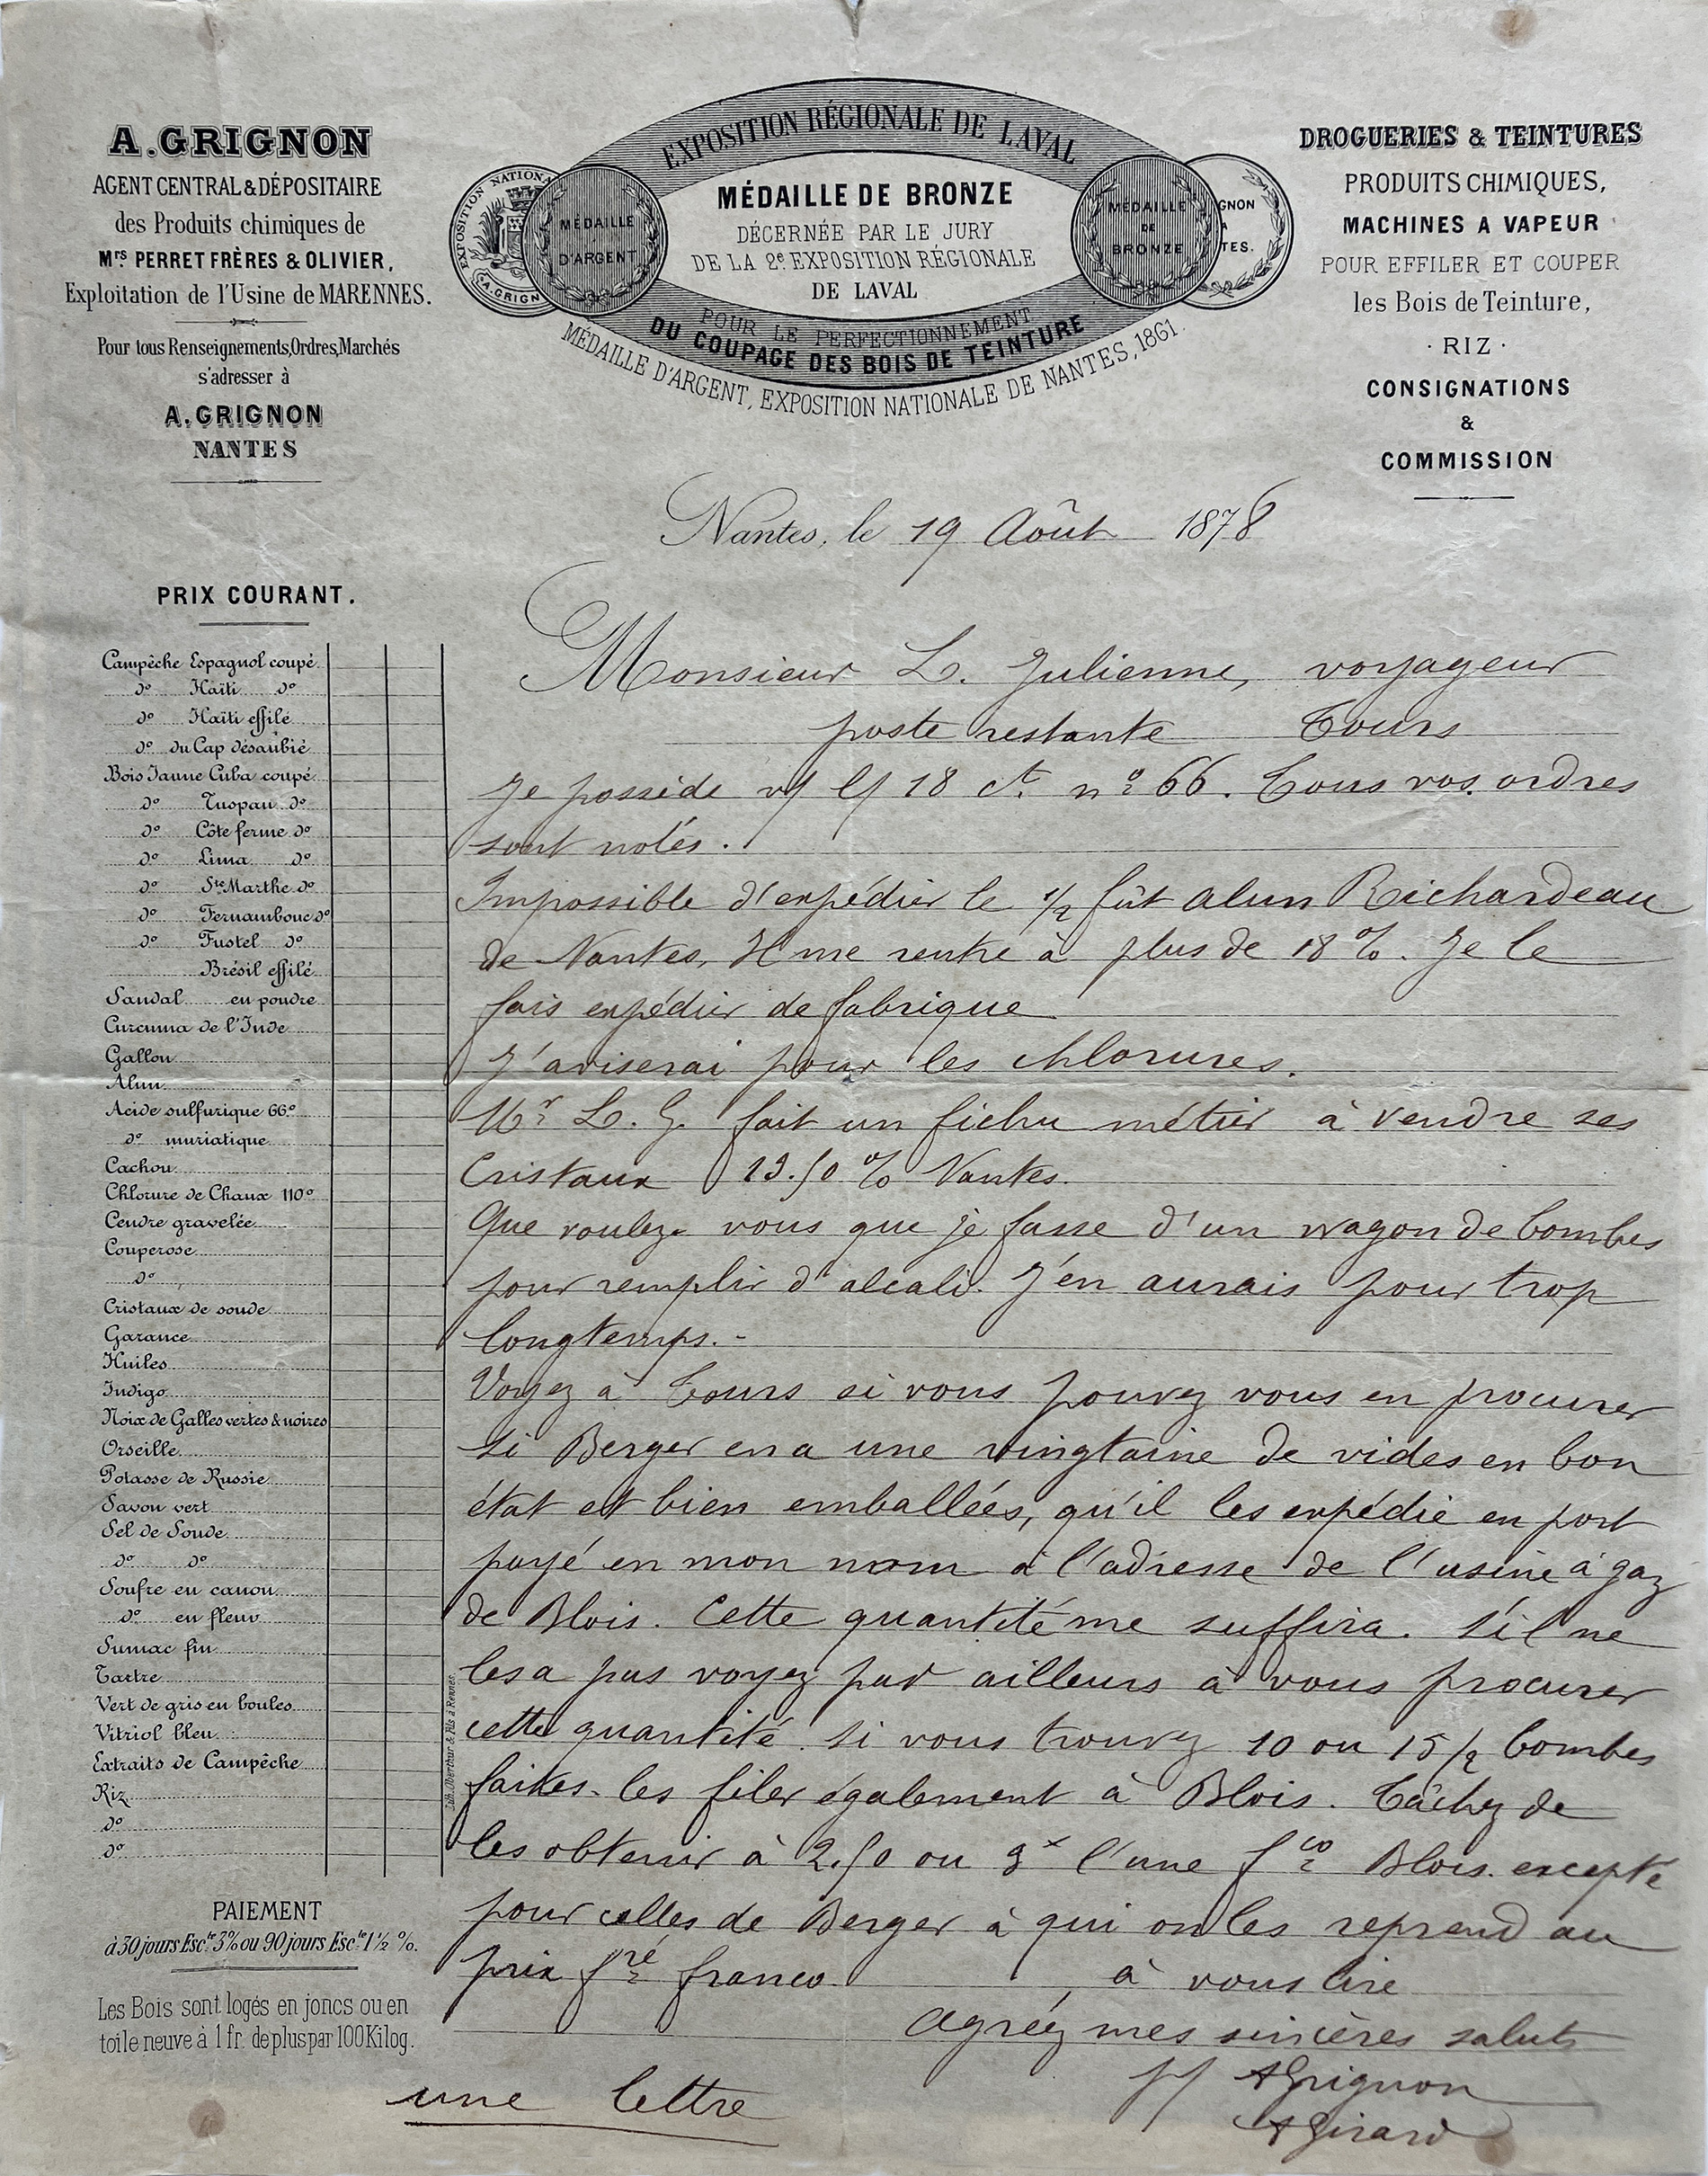 A. GRIGNON
AGENT CENTRAL & DÉPOSITAIRE
des Produits chimiques de
Mrs. PERRET FRÈRES & OLIVIER,
Exploitation de l'Usine de MARENNES.
Pour tous Renseignements, Ordres, Marchés
s'adresser à
A. GRIGNON
NANTES
EXPOSITION NATIONA
A. GRIGN
MÉDAILLE
D'ARGENT
EXPOSITION RÉGIONALE DE LAVAL
MÉDAILLE DE BRONZE
DÉCERNÉE PAR LE JURY
DE LA 2e EXPOSITION RÉGIONALE
DE LAVAL
POUR LE PERFECTIONNEMENT
DU COUPAGE DES BOIS DE TEINTURE
MÉDAILLE D'ARGENT, EXPOSITION NATIONALE DE NANTES, 1861.
MÉDAILLE
DE
BRONZE
GNON
A
TES.
DROGUERIES & TEINTURES
PRODUITS CHIMIQUES,
MACHINES A VAPEUR
POUR EFFILER ET COUPER
les Bois de Teinture,
· RIZ ·
CONSIGNATIONS
&
COMMISSION
Nantes, le 19 Août 1878
PRIX COURANT.
Campêche Espagnol coupé
do Haïti do
do Haïti effilé
do du Cap désaubié
Bois Jaune Cuba coupé
do Tuspan do
do Côte ferme do
do Lima do
do Ste Marthe do
do Fernambouc do
do Fustel do
Brésil effilé
Sandal en poudre
Curcuma de l'Inde
Gallon
Alun
Acide sulfurique 66°
do muriatique
Cachou
Chlorure de Chaux 110°
Cendre gravelée
Couperose
do
Cristaux de soude
Garance
Huiles
Indigo
Noix de Galles vertes & noires
Orseille
Potasse de Russie
Savon vert
Sel de Soude
do do
Soufre en canon
do en fleur
Sumac fin
Tartre
Vert de gris en boules
Vitriol bleu
Extraits de Campêche
Riz
do
do
PAIEMENT
à 30 jours Escte 3% ou 90 jours Escte 1 1/2 %.
Les Bois sont logés en joncs ou en
toile neuve à 1 fr. de plus par 100 Kilog.
Lith. Oberthur & Fils à Rennes.
Monsieur L. Julienne, voyageur
poste restante Tours
Je possède v/ l/ 18 ct no 66. Tous vos ordres
sont notés.
Impossible d'expédier le 1/2 fût alun Richardeau
de Nantes, Il me rentre à plus de 18 %. Je le
fais expédier de fabrique
J'aviserai pour les chlorures.
Mr L. G. fait un fichu métier à vendre ses
Cristaux 13.50 % Nantes.
Que voulez-vous que je fasse d'un wagon de bombes
pour remplir d'alcali. J'en aurais pour trop
longtemps.-
Voyez à Tours si vous pouvez vous en procurer
si Berger en a une vingtaine de vides en bon
état et bien emballées, qu'il les expédie en port
payé en mon nom à l'adresse de l'usine à gaz
de Blois. Cette quantité me suffira. S'il ne
les a pas voyez par ailleurs à vous procurer
cette quantité. Si vous trouvez 10 ou 15 1/2 bombes
faites-les filer également à Blois. Tâchez de
les obtenir à 2.50 ou 3x l'une fco Blois. excepté
pour celles de Berger à qui on les reprend au
prix fré franco. à vous lire
Agréez mes sincères saluts
p/ A Grignon
A Girard
une lettre